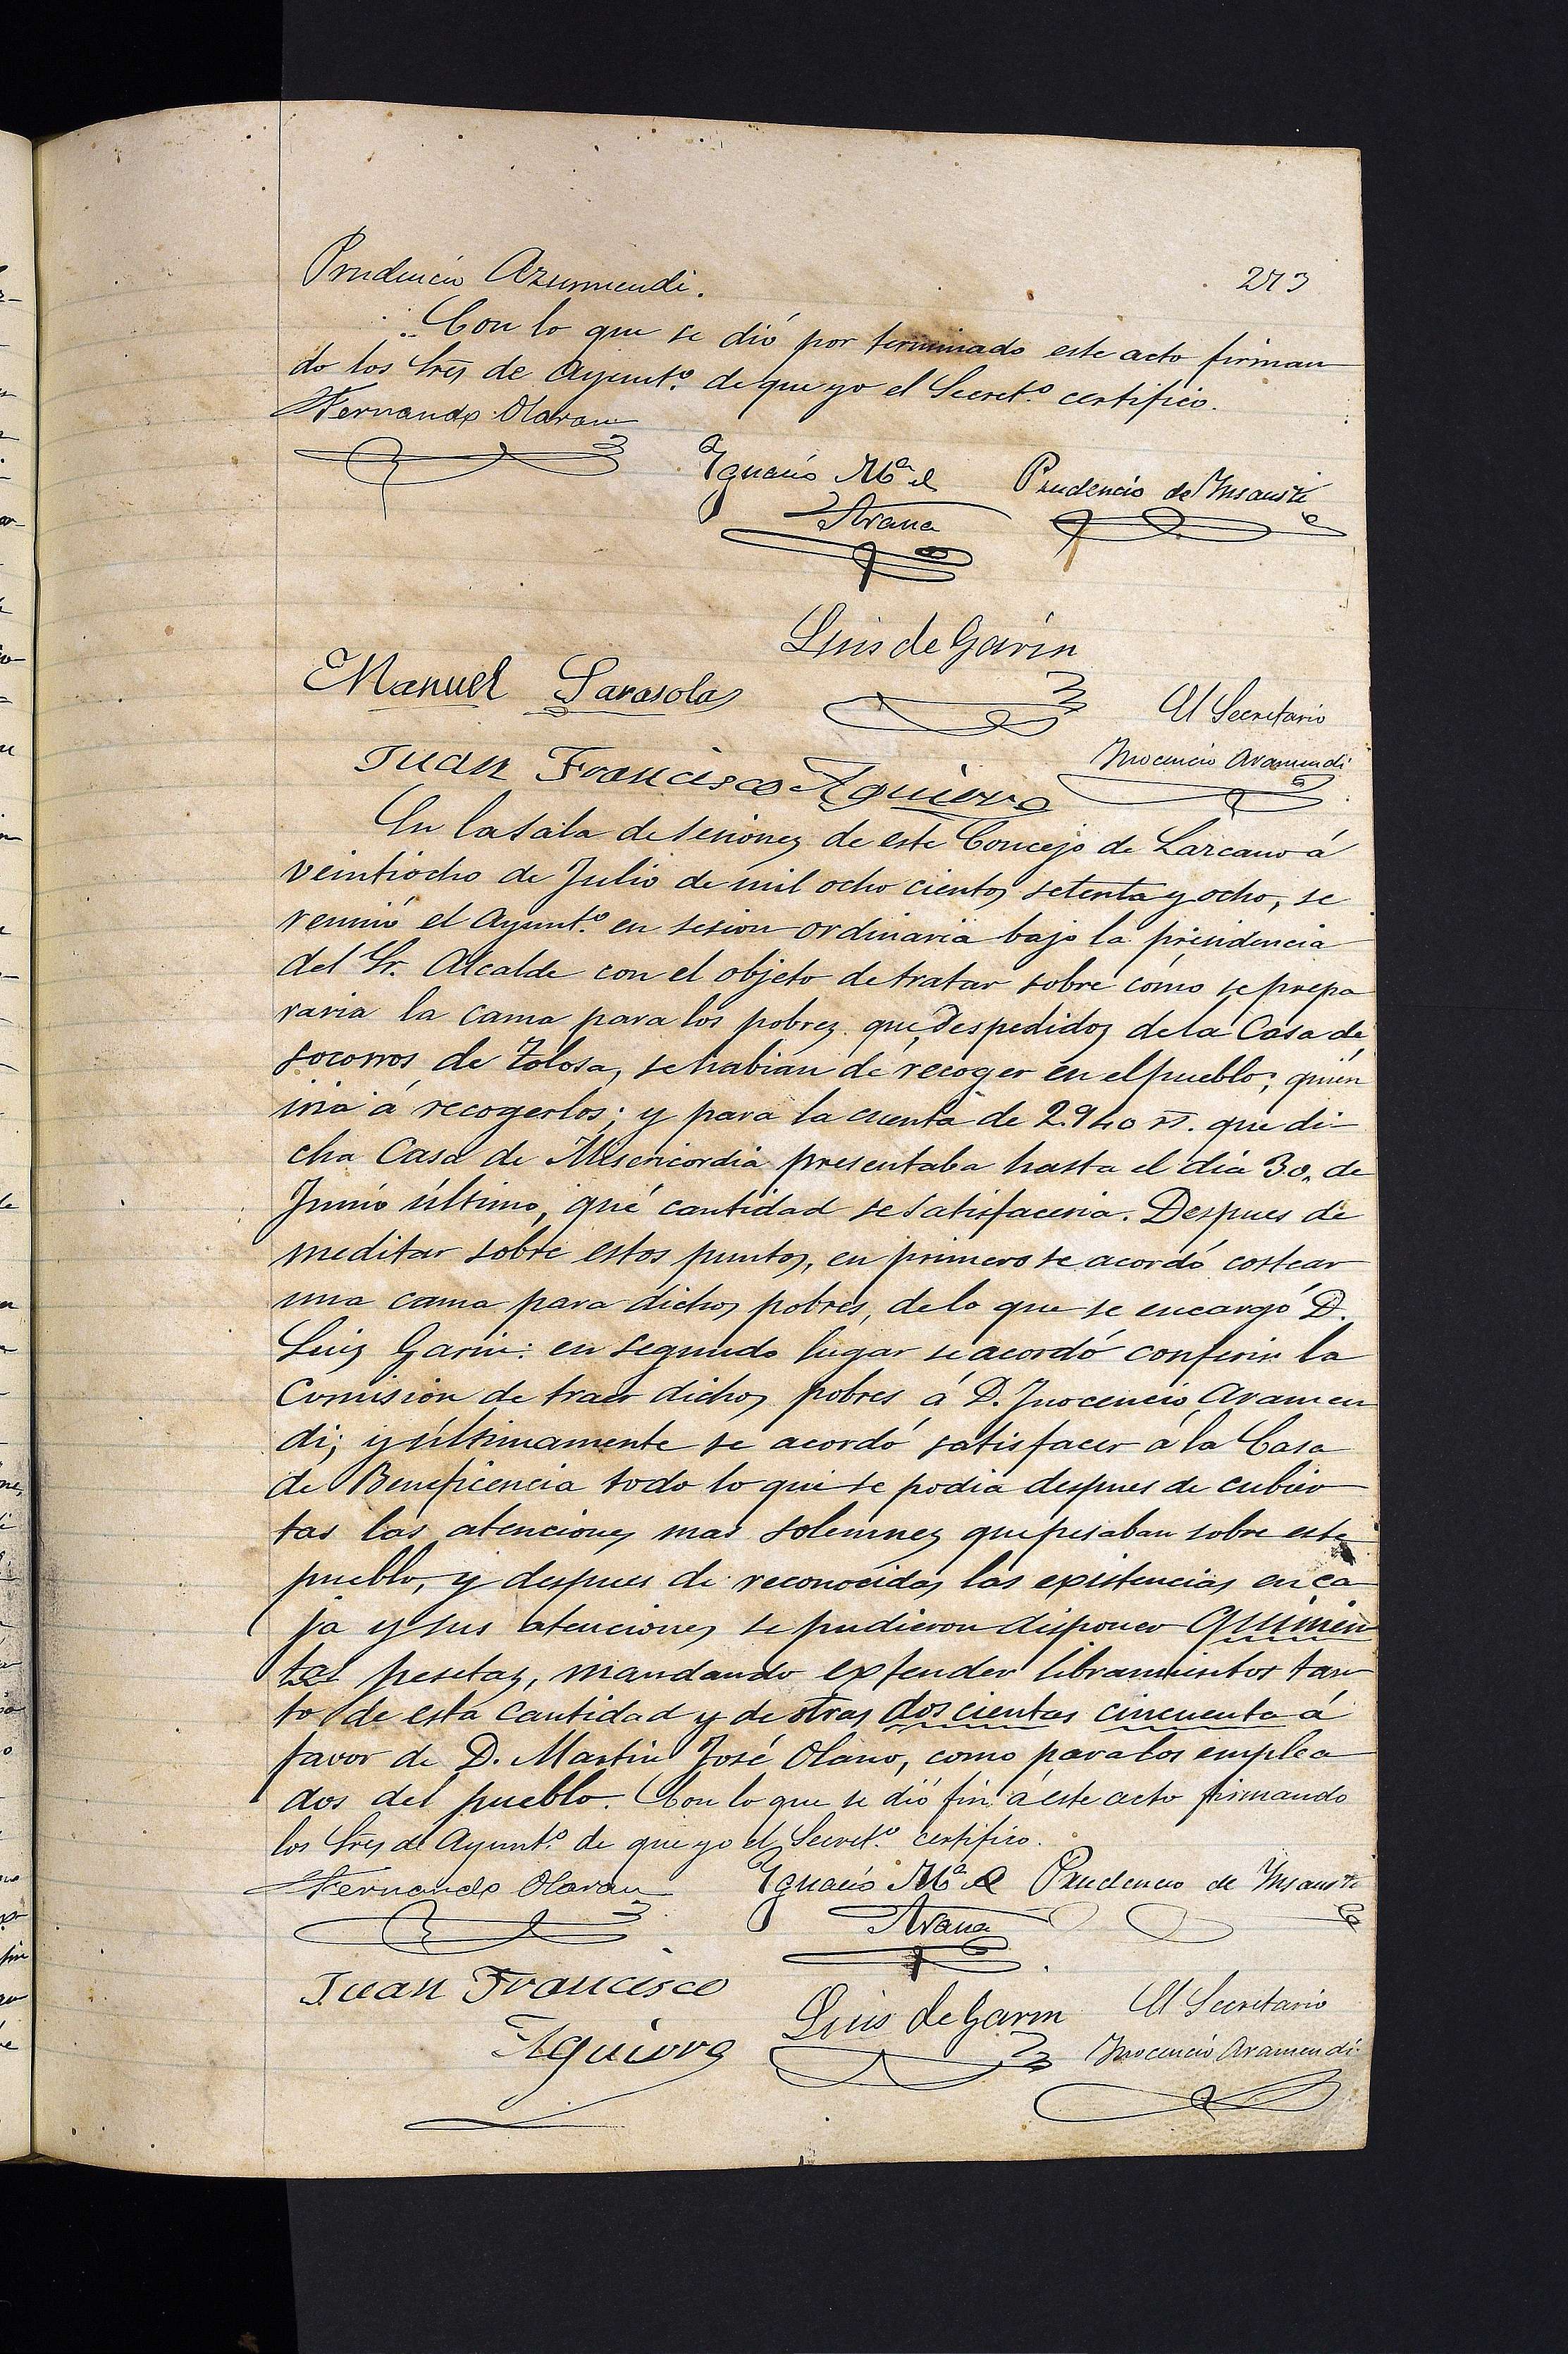 Prudencio Azurmendi.
273
Con lo que se dió por terminado este acto firman
do los Sres de Ayuntº. de que yo el Secretº. certifico.
Fernando Olaran
Ignacio Mª de
Arana
Prudencio de Insausti
Luis de Garin
Manuel Sarasola
El Secretario
Inocencio Aramendi
Juan Francisco Aguirre
En la sala de sesiones de este Concejo de Lazcano á
veintiocho de Julio de mil ocho cientos setenta y ocho, se
reunió el Ayuntº. en sesion ordinaria bajo la presidencia
del Sr. Alcalde con el objeto de tratar sobre cómo se prepa
raria la cama para los pobres que, despedidos de la Casa de
socorros de Tolosa, se habian de recoger en el pueblo; quién
iria á recogerlos; y para la cuenta de 2.940 rs. que di-
cha Casa de Misericordia presentaba hasta el dia 30, de
Junio último, qué cantidad se satisfaceria. Despues de
meditar sobre estos puntos, en primero se acordó costear
una cama para dichos pobres, de lo que se encargó D.
Luis Garin: en segundo lugar se acordó conferir la
Comision de traer dichos pobres á D. Inocencio Aramen
di; y últimamente se acordó satisfacer á la Casa
de Beneficencia todo lo que se podia despues de cubier
tas las atenciones mas solemnes que pesaban sobre este
pueblo, y despues de reconocidas las existencias en ca
ja y sus atenciones se pudieron disponer quinien
tas pesetas, mandando extender libramientos tan
to de esta cantidad y de otras doscientas cincuenta á
favor de D. Martin José Olano, como para los emplea
dos del pueblo. Con lo que se dió fin á este acto firmando
los Sres de Ayuntº. de que yo el Secretº. certifico.
Fernando Olaran
Ignacio Mª de
Arana
Prudencio de Insausti
Juan Francisco
Aguirre
Luis de Garin
El Secretario
Inocencio Aramendi